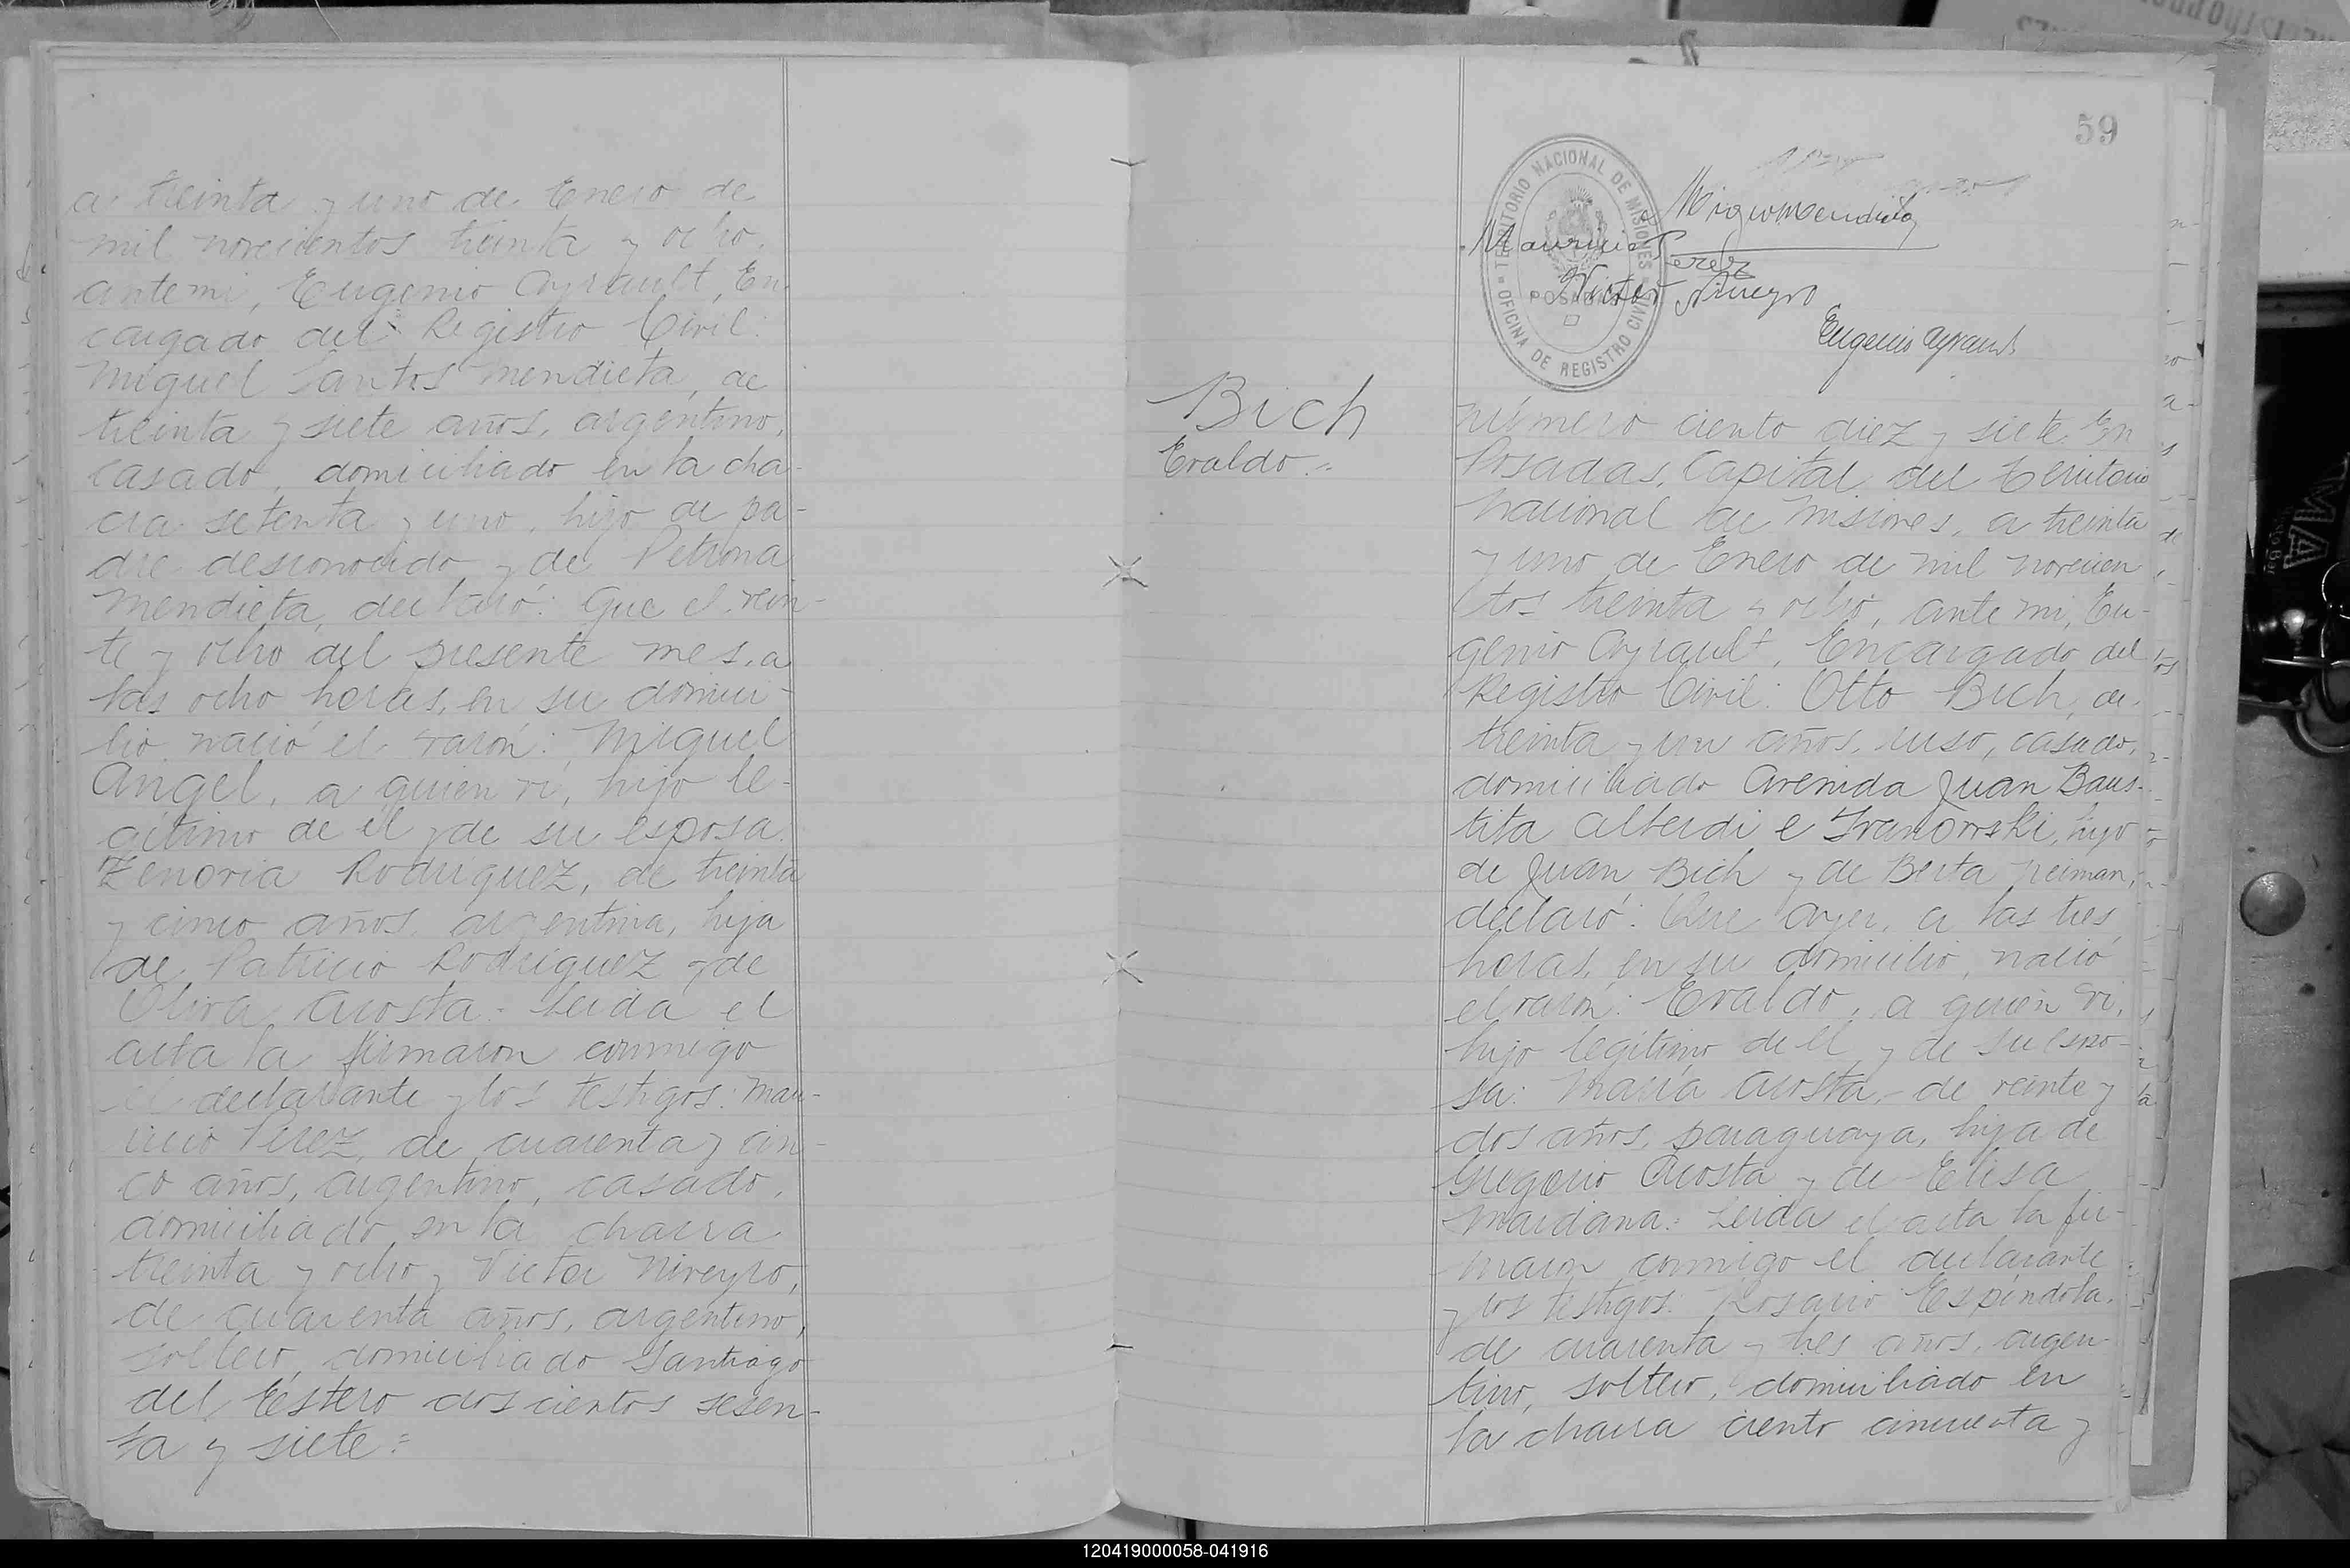 a treinta y uno de Enero de
mil novecientos treinta y ocho,
ante mi, Eugenio Ayrault, En
cargado del Registro Civil:
Miguel Santos Mendieta, de
treinta y siete años, argentino,
casado, domiciliado en la cha-
cra setenta y uno, hijo de pa-
dre desconocido y de Petrona
Mendieta, declaró: Que el vein-
te y ocho del presente mes, a
las ocho horas, en su domici-
lio nació el varón: Miguel
Angel, a quien vi, hijo le-
gítimo de él y de su esposa
Zenovia Rodriguez, de treinta
y cinco años, argentina, hija
de Patricio Rodriguez y de
Oliva Acosta.- Leida el
acta la firmaron conmigo
el declarante y los testigos: Mau-
ricio Perez, de cuarenta y cin-
co años, argentino, casado,
domiciliado en la chacra
treinta y ocho y Victor Niveyro,
de cuarenta años, argentino,
soltero, domiciliado Santiago
del Estero doscientos sesen-
ta y siete=
59
TERRITORIO NACIONAL DE MISIONES
POSADAS
OFICINA DE REGISTRO CIVIL
Mauricio Perez
Victor Niveyro
Eugenio Ayrault
Bich
Evaldo.=
Número ciento diez y siete. En
Posadas, Capital del Territorio
Nacional de Misiones, a treinta
y uno de Enero de mil novecien
tos treinta y ocho, ante mi, Eu-
genio Ayrault, Encargado del
Registro Civil: Otto Bich, de
treinta y un años, ruso, casado,
domiciliado Avenida Juan Baus-
tita Alberdi e Ivanowski, hijo
de Juan Bich y de Berta Neiman,
declaró: Que ayer, a las tres
horas, en su domicilio, nació
el varón: Evaldo, a quien vi,
hijo legítimo de él y de su espo-
sa: María Acosta, de veinte y
dos años, paraguaya, hija de
Gregorio Acosta y de Elisa
Maidana.= Leida el acta la fir-
maron conmigo el declarante
y los testigos: Rosario Espíndola,
de cuarenta y tres años, argen
tino, soltero, domiciliado en
la chacra ciento cincuenta y
120419000058-041916